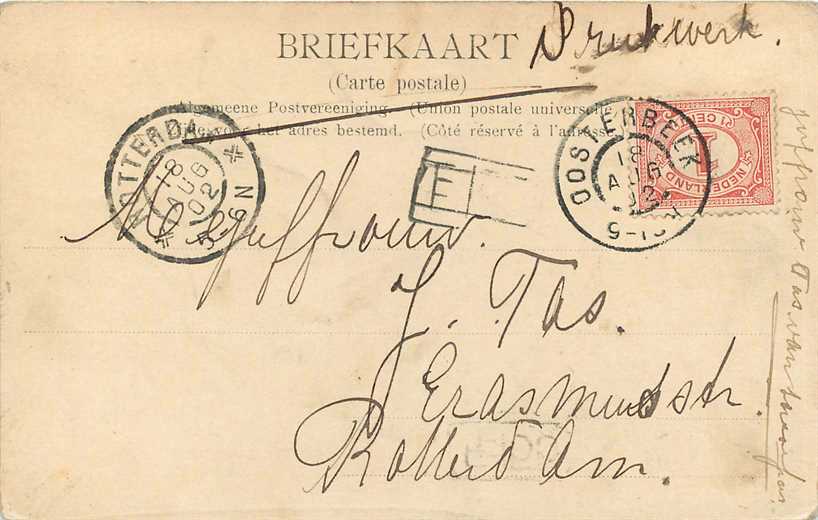 BRIEFKAART Drukwerk.
(Carte postale)
Algemeene Postvereeniging. (Union postale universelle
het adres bestemd. (Côté réservé à l'adresse.
ROTTERDAM
18 AUG 02
5-6N
E
OOSTERBEEK
18 AUG 02
NEDERLAND
1 CENT
Mejuffrouw.
J. Tas.
Erasmusstr.
Rotterdam.
Juffrouw Tas van